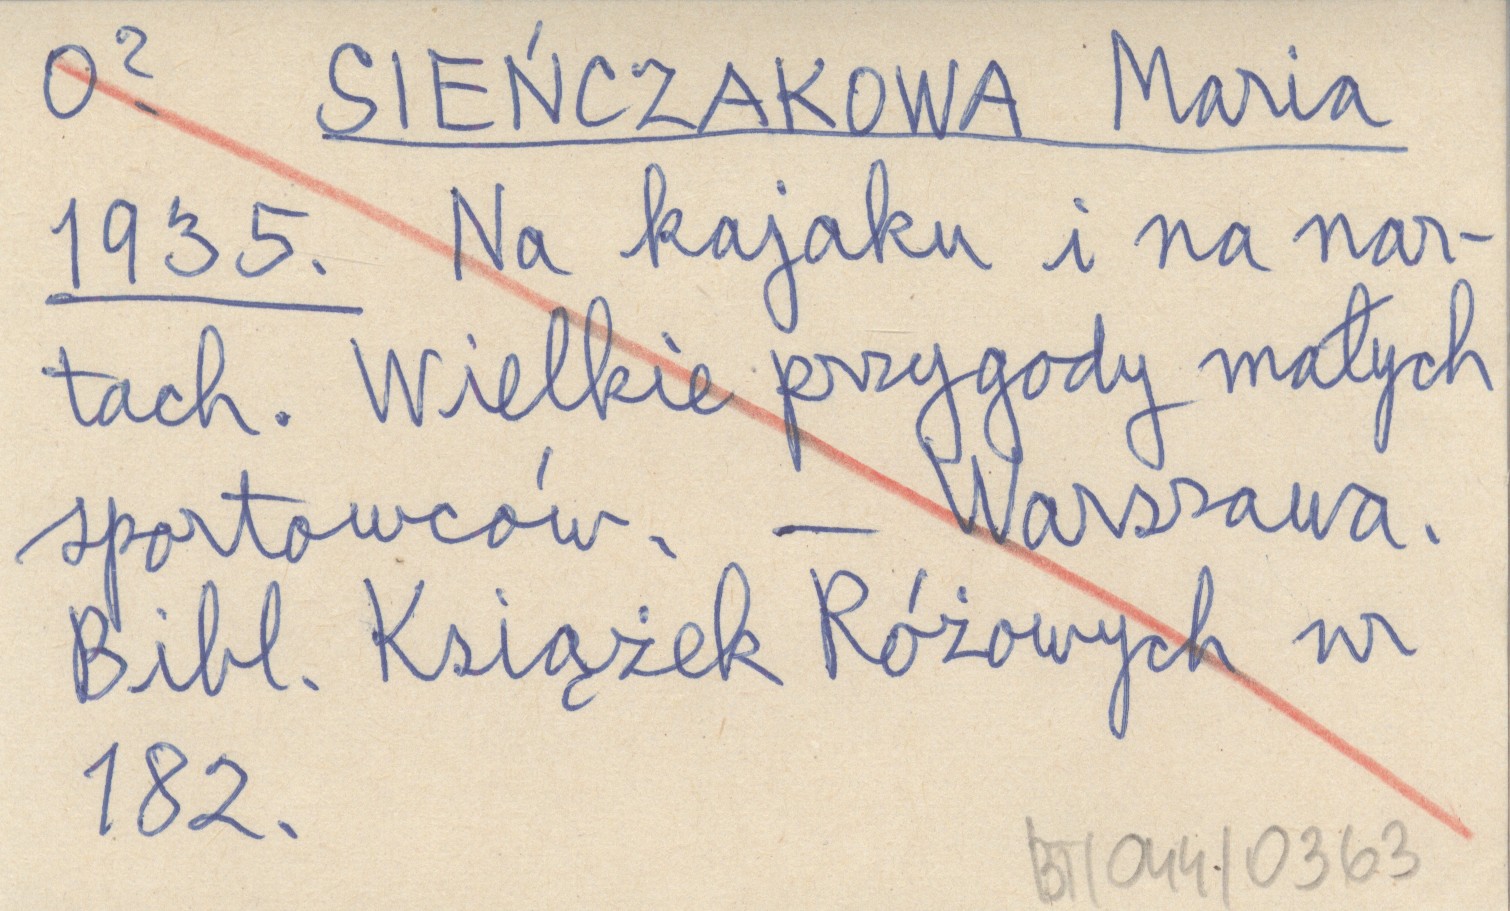 O? SIEŃCZAKOWA Maria
1935. Na kajaku i na nar-
tach. Wielkie przygody małych
sportowców. — Warszawa.
Bibl. Książek Różowych nr
182.
BT/044/0363